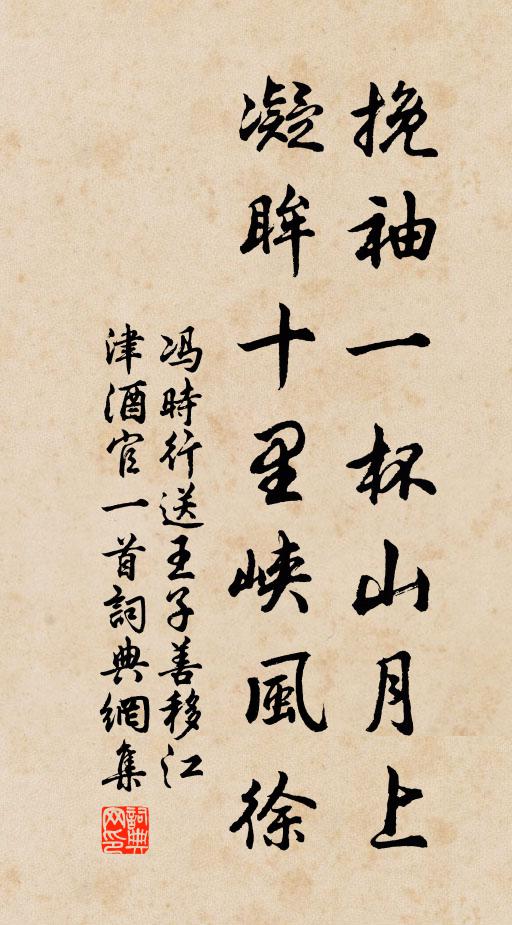 挽袖一杯山月上
凝眸十里峡風徐
冯時行送王子善移江
津酒官一首詞典網集
詞典
网印